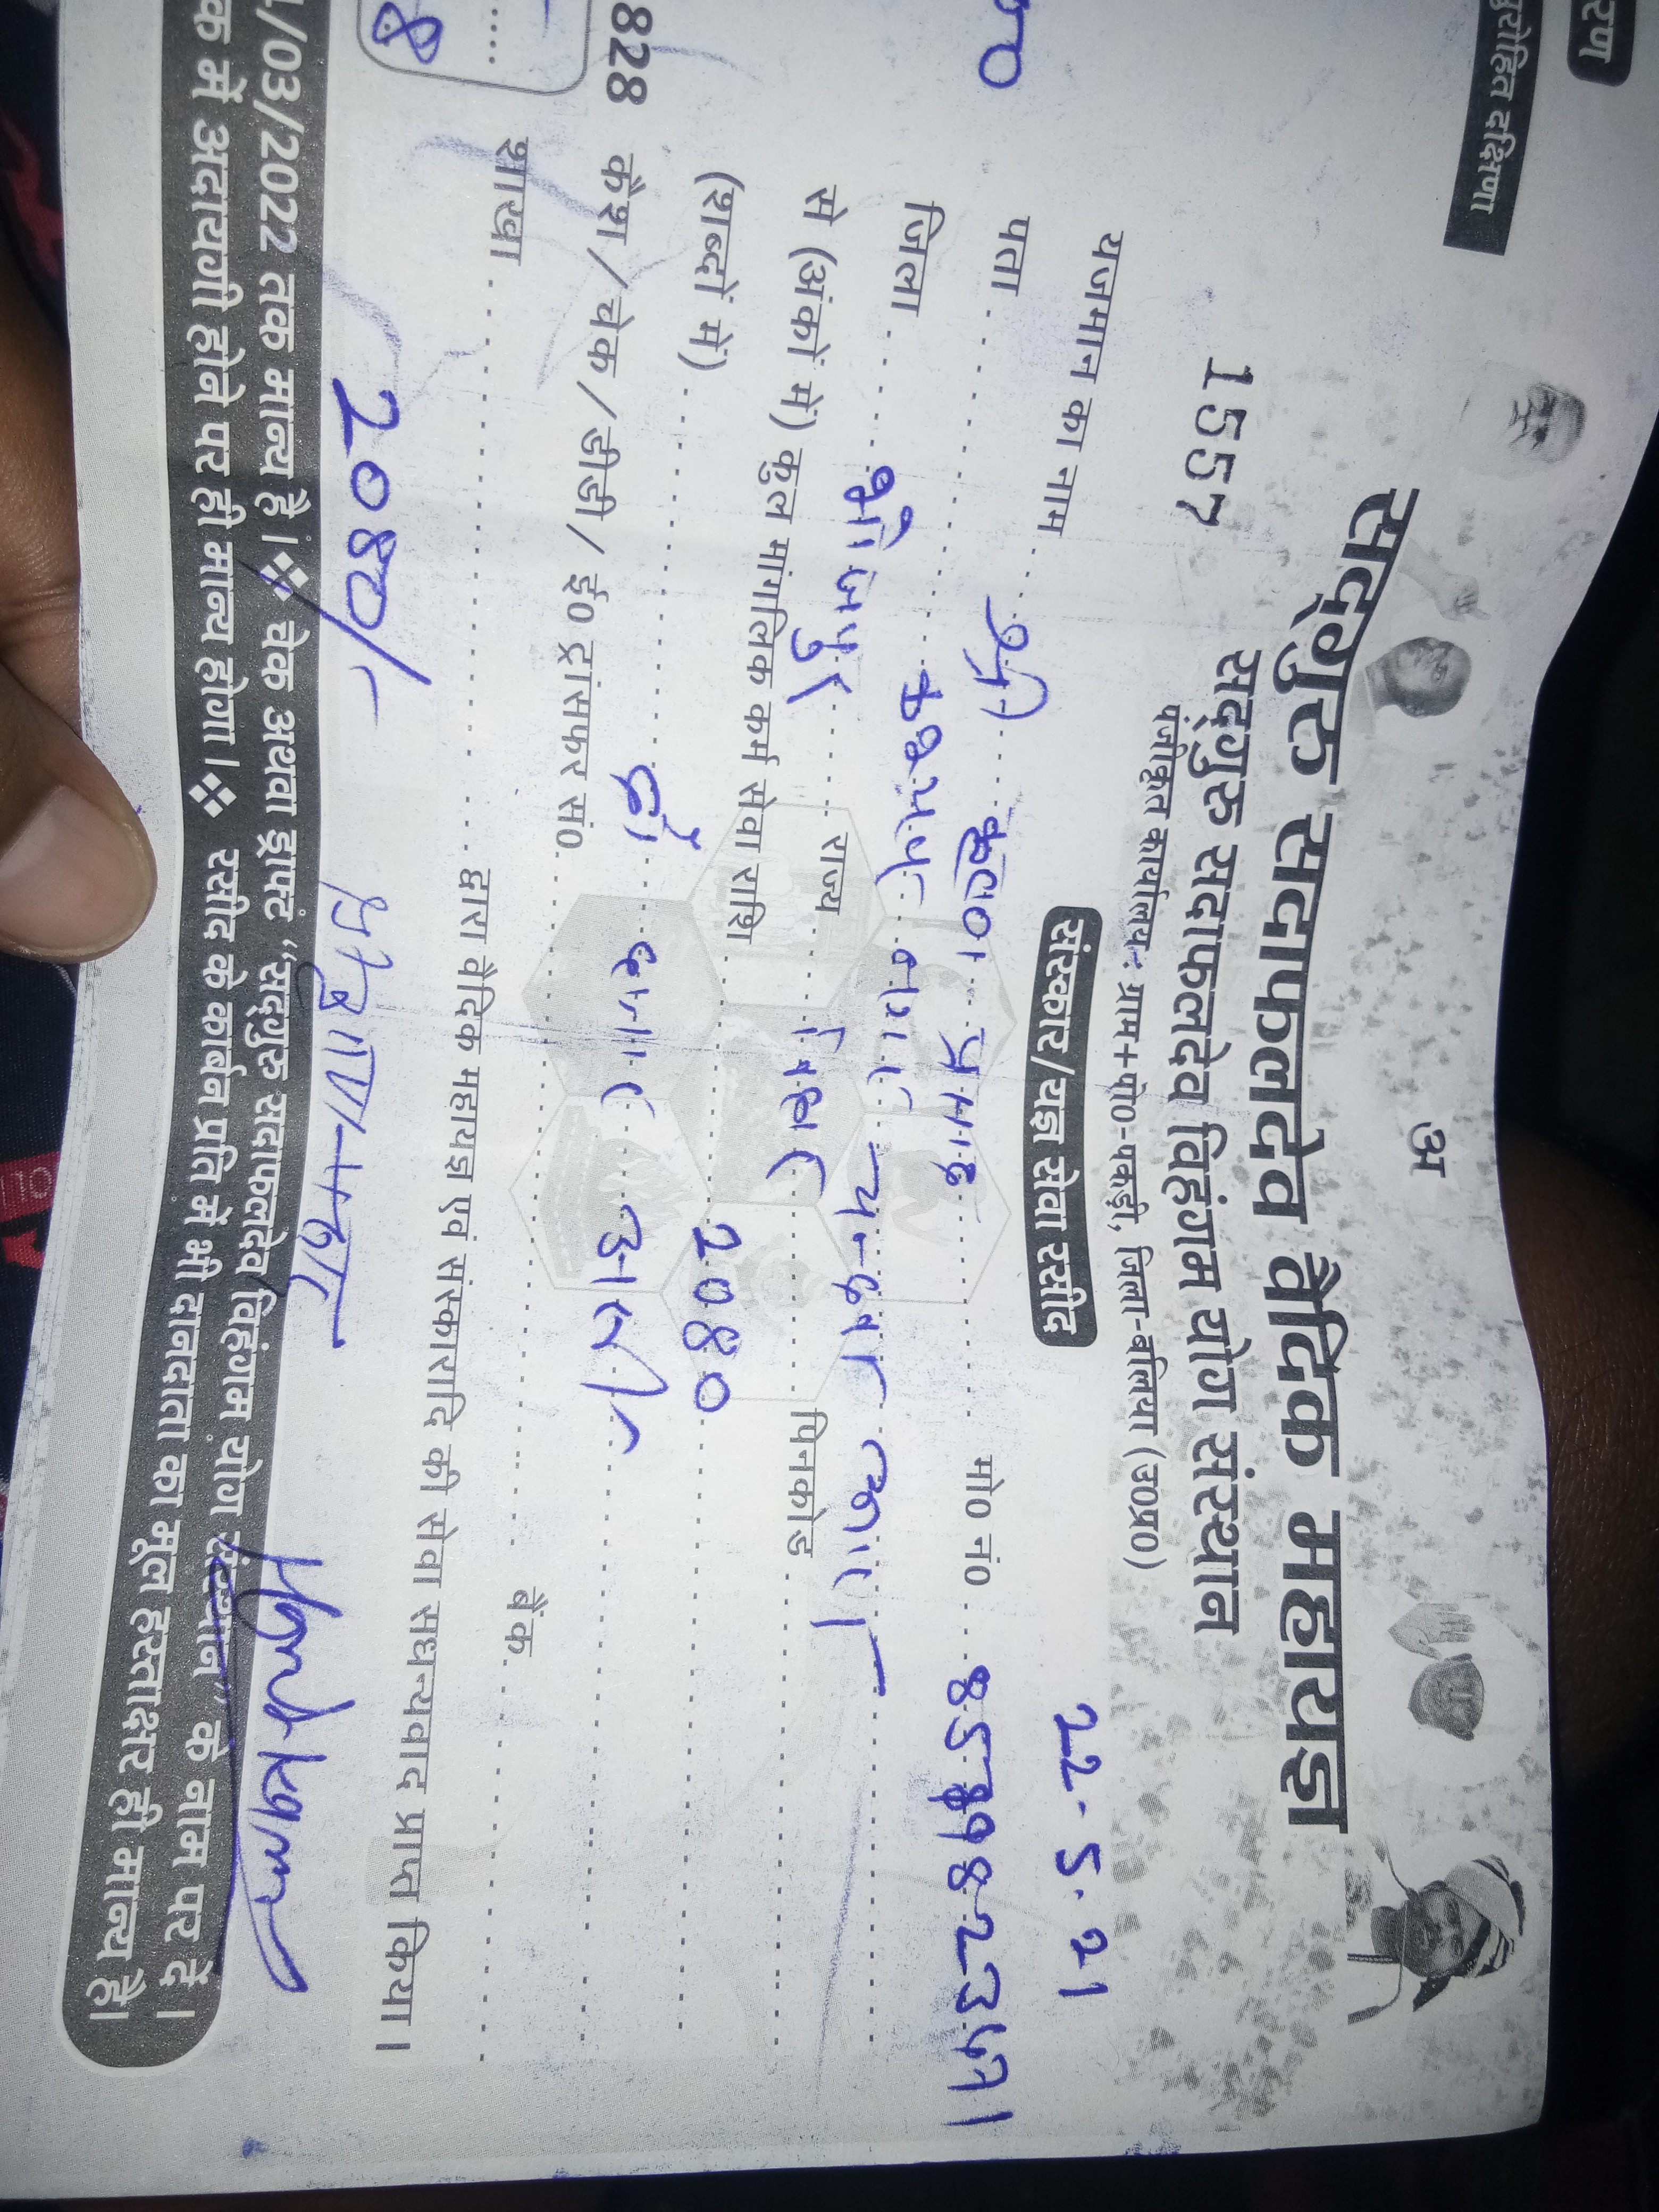 अ
रण
पुरोहित दक्षिणा
सद्गुरु सदाफलदेव वैदिक महायज्ञ
सद्गुरु सदाफलदेव विहंगम योग संस्थान
पंजीकृत कार्यालय- ग्राम+पो0-पकड़ी, जिला-बलिया (उ0प्र0)
1557
संस्कार/यज्ञ सेवा रसीद
22.5.21
यजमान का नाम श्री कृष्णा प्रसाद मो0 नं0
पता
जिला भोजपुर राज्य बिहार पिनकोड
से (अंकों में) कुल मांगलिक कर्म सेवा राशि 2080
(शब्दों में) दो हजार अस्सी
828 कैश / चेक / डीडी / ई0 ट्रांसफर सं0
शाखा बैंक
8
द्वारा वैदिक महायज्ञ एवं संस्कारादि की सेवा सधन्यवाद प्राप्त किया।
2080/-
/03/2022 तक मान्य है। ❖ चेक अथवा ड्राफ्ट "सद्गुरु सदाफलदेव विहंगम योग संस्थान" के नाम पर दें।
क में अदायगी होने पर ही मान्य होगा। ❖ रसीद के कार्बन प्रति में भी दानदाता का मूल हस्ताक्षर ही मान्य है।